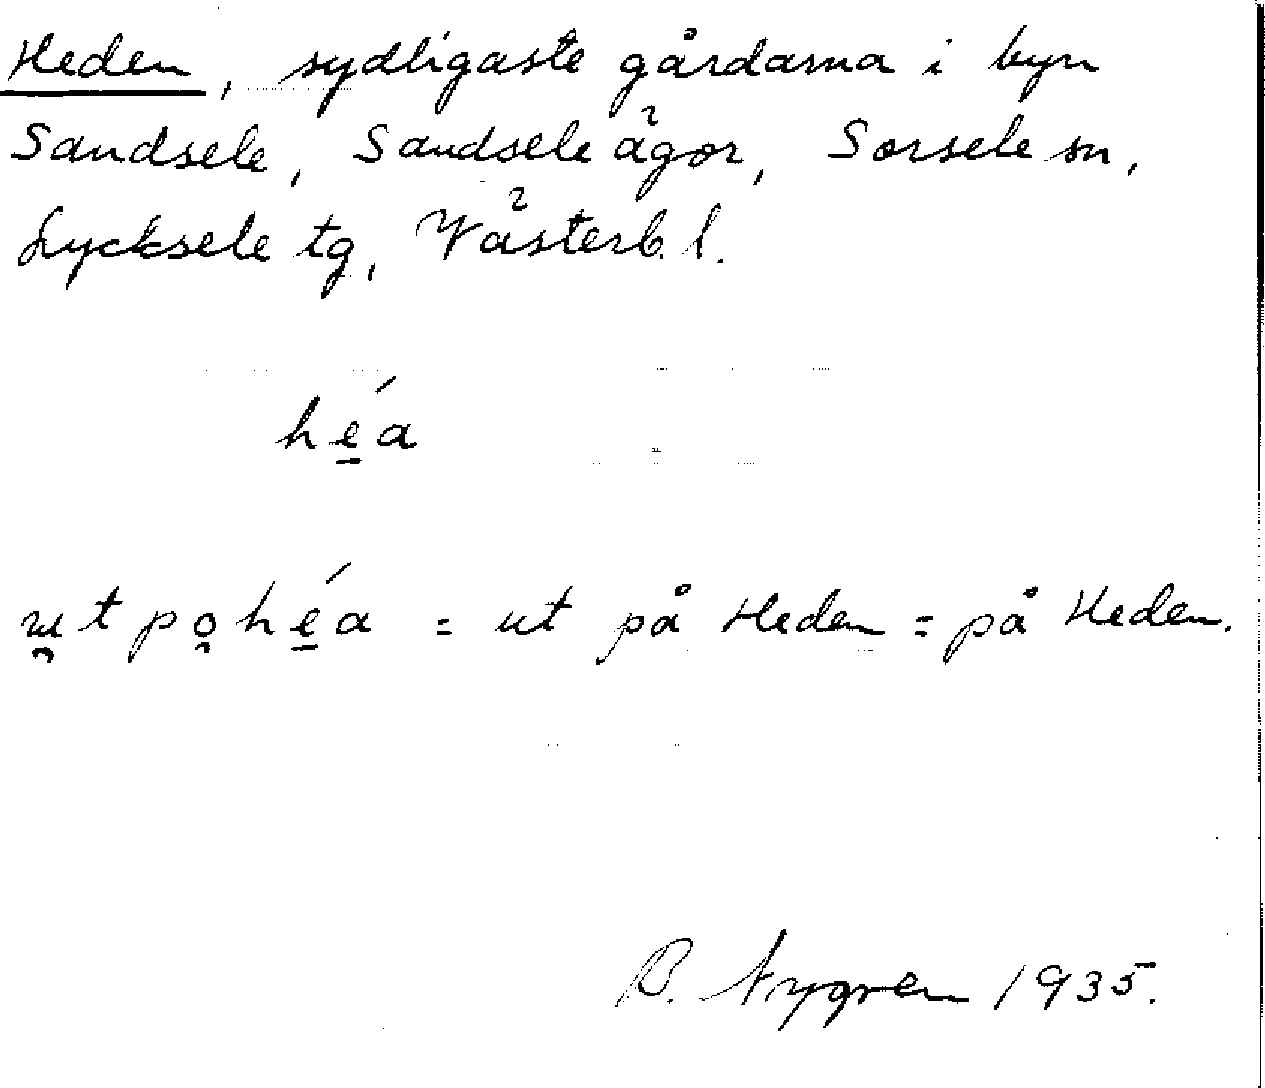 Heden, sydligaste gårdarna i byn
Sandsele, Sandsele ägor, Sorsele sn,
Lycksele tg, Västerb. l.
hé̲a
ut po hé̲a = ut på Heden = på Heden.
B. Nygren 1935.